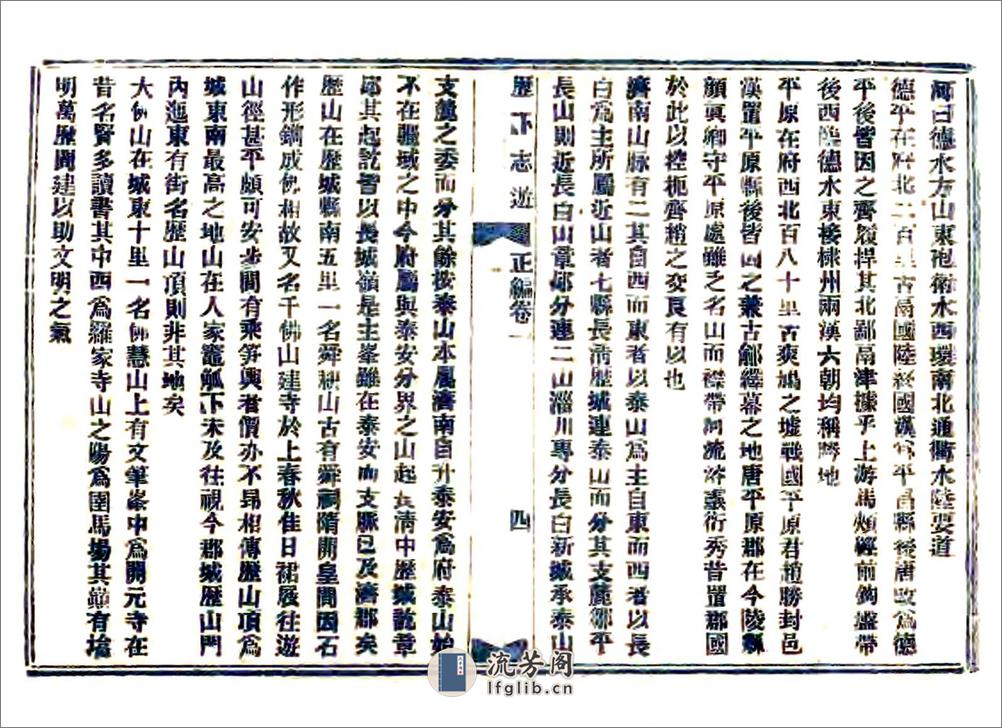 河曰德水方山東抱衛水西環南北通衢水陸要道
德平在府北二百里古鬲國陸終國漢為平昌縣後唐改為德
平後皆因之齊履捍其北鄙鬲津據乎上游馬頰經前鉤盤帶
後西陸德水東接棣州兩漢六朝均稱勝地
平原在府西北百八十里古爽鳩之墟戰國平原君趙勝封邑
漢置平原縣後皆因之兼古鄃繹幕之地唐平原郡在今陵縣
顏真卿守平原處雖乏名山而襟帶河流沃衍秀昔置郡國
於此以控扼齊趙之交良有以也
濟南山脉有二其自西而東者以泰山為主自東而西者以長
白為主所屬近山者七縣長淸歷城連泰山而分其支麓鄒平
長山則近長白山章邱分連二山淄川專分長白新城承泰山
歷下志遊 正編卷一 四
支麓之委而分其餘按泰山本屬濟南自升泰安為府泰山始
不在疆域之中今府屬與泰安分界之山起長淸中歷城訖章
邱其起訖皆以長城嶺是主峯雖在泰安而支脈已及濟郡矣
歷山在歷城縣南五里一名舜耕山古有舜祠隋開皇間因石
作形鐫成佛相故又名千佛山建寺於上春秋佳日裙屐往遊
山徑甚平頗可安步間有乘笋輿者價亦不昂相傳歷山頂為
城東南最高之地山在人家竈觚下未及往視今郡城歷山門
內迤東有街名歷山頂則非其地矣
大佛山在城東十里一名佛慧山上有文筆峯中為開元寺在
昔名賢多讀書其中西為羅家寺山之陽為圍馬場其巔有塔
明萬歷間建以助文明之氣
流芳阁
lfglib.cn